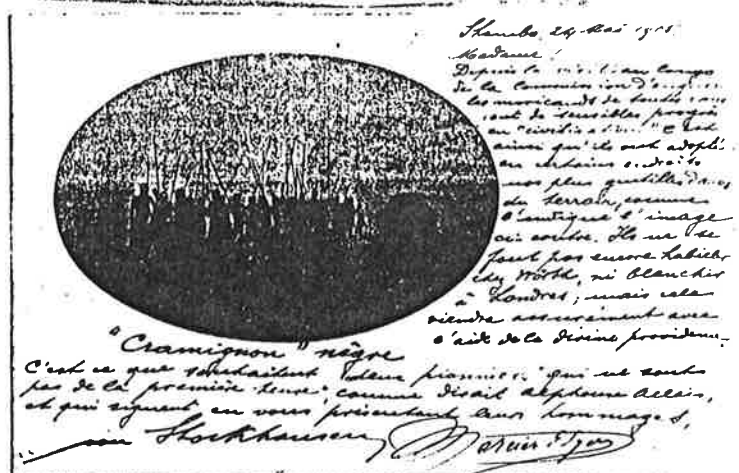 24 Mai
Madame!
Depuis la au Congo
de la Commission d'
les moricauds de toutes
font de sensibles progrès
en "civilisation." C'est
ainsi qu'ils ont adopté
en certains endroits
nos plus gentilles
du terroir, comme
l'indique l'image
ci-contre. Ils ne se
font pas encore habiller
chez Wörth, ni blanchir
à Londres; mais cela
viendra assurément avec
l'aide de la divine providence.
"Cramignon" nègre
C'est ce que souhaitent deux pionniers qui ne sont
pas de la première heure, comme disait Alphonse Allais,
et qui signent en vous présentant leurs hommages,
von Stockhausen